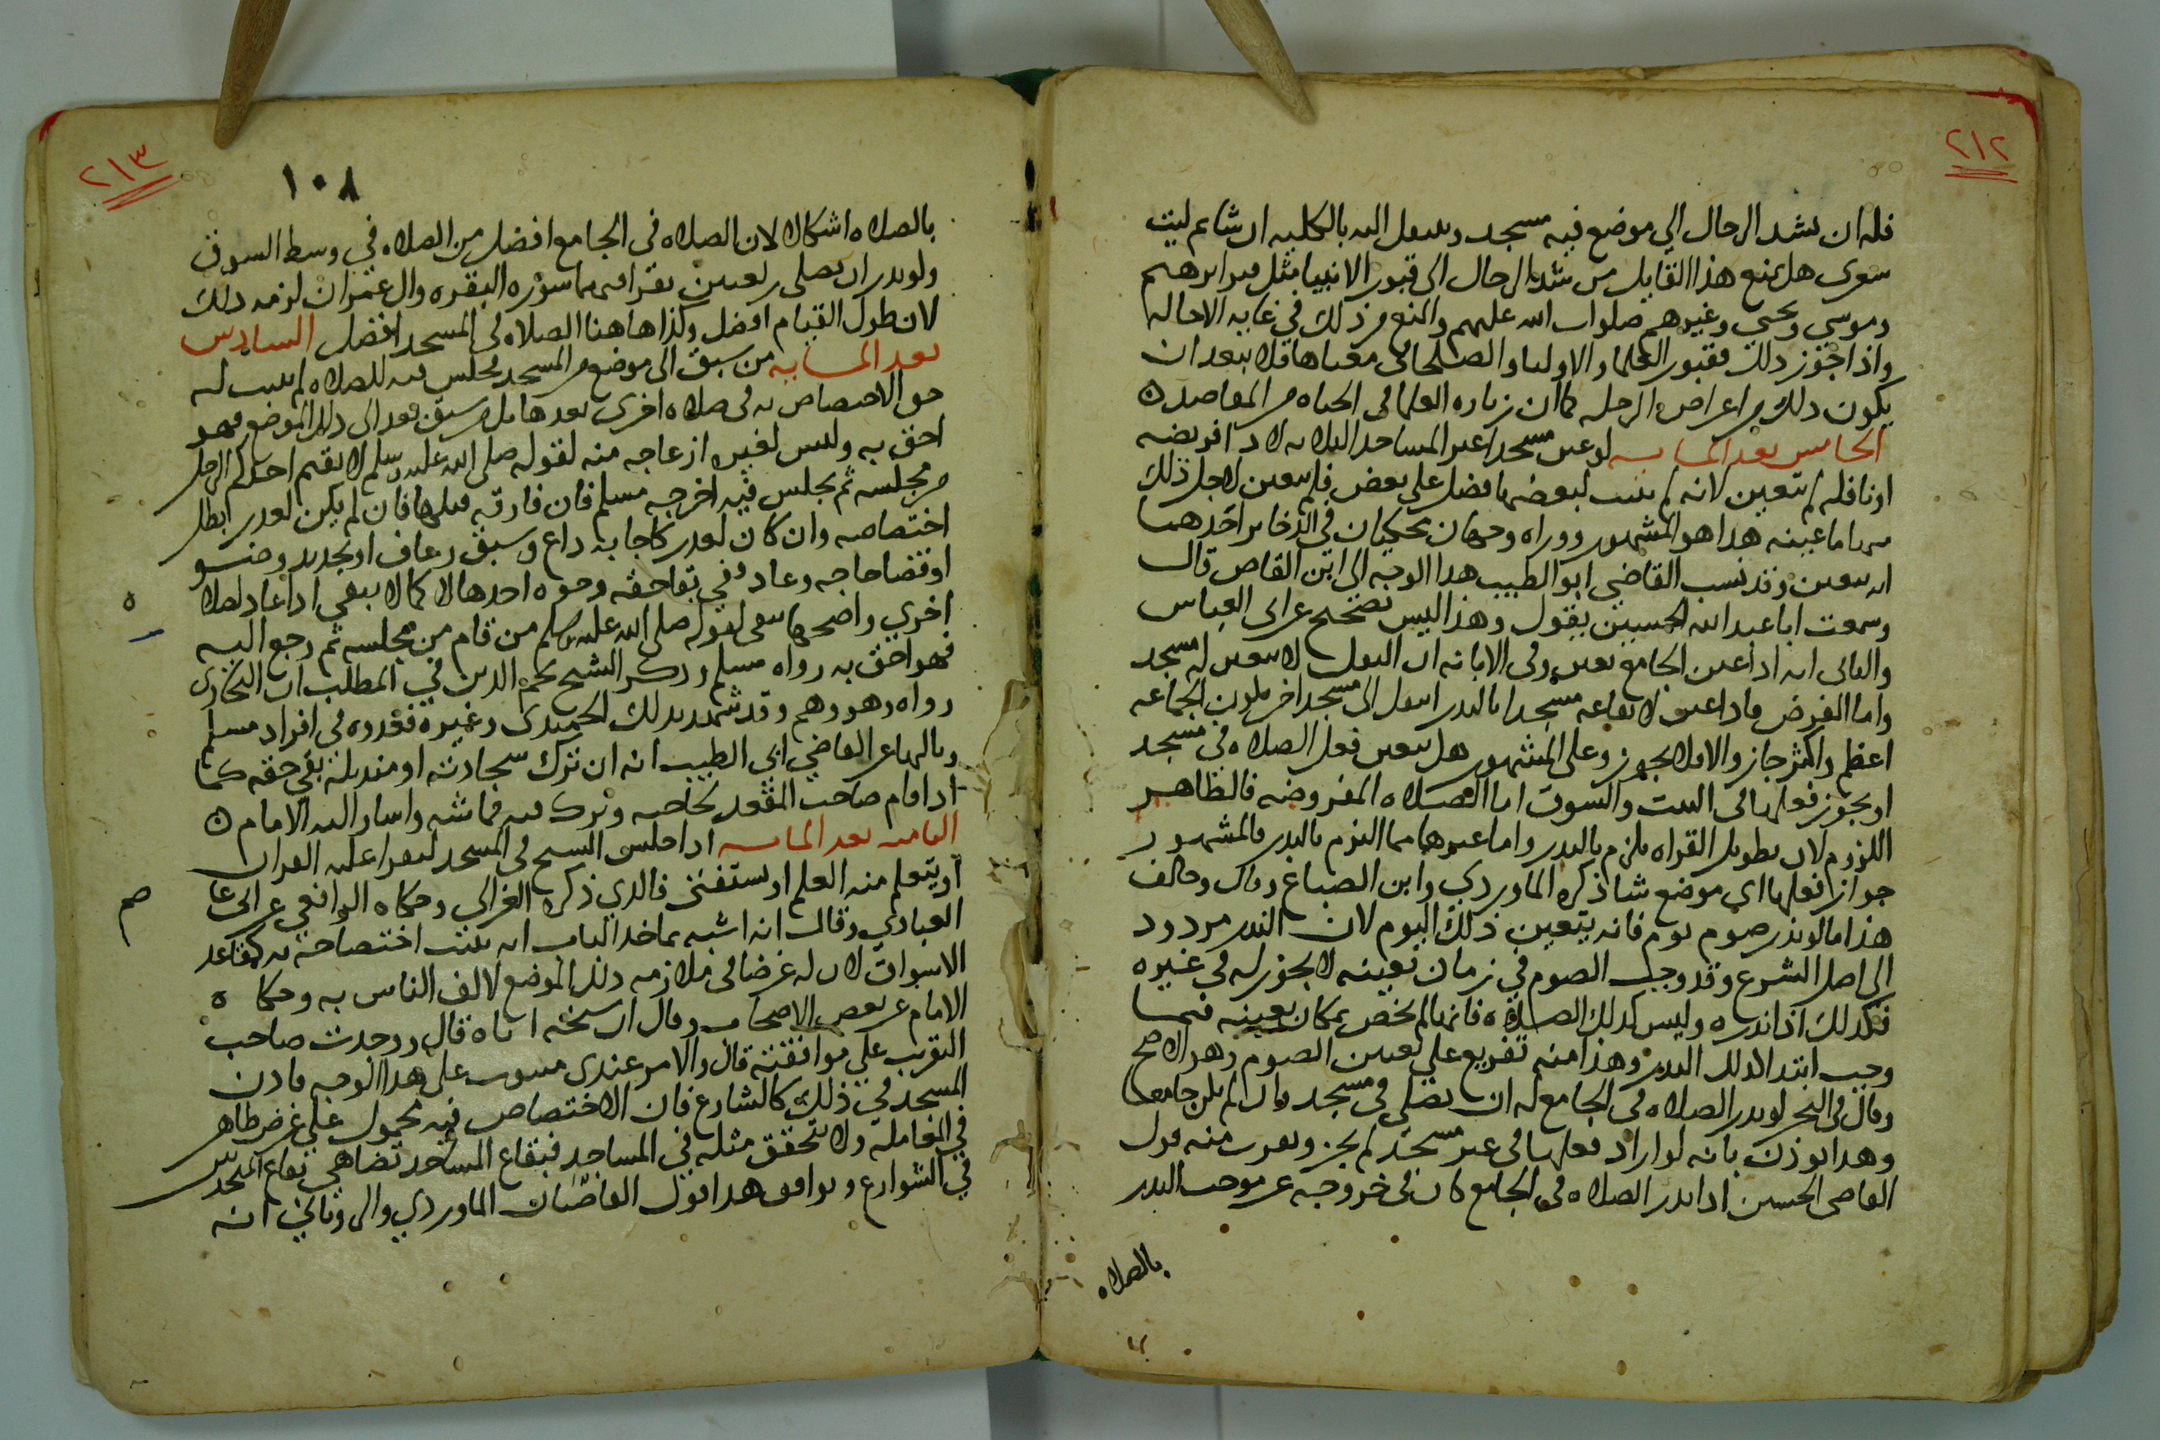 ٢١٢
فله ان يشد الرحال الى موضع فيه مسجد وينتقل اليه بالكلية ان شاء ثم ليت
شعرى هل يمنع هذا القايل من شد الرحال الى قبور الانبيا مثل قبر ابرهيم
وموسى ويحيى وغيرهم صلوات الله عليهم والمنع من ذلك في غاية الاحالة
واذا جوز ذلك فقبور العلما والاوليا والصلحا في معناها فلا يبعد ان
يكون ذلك من اغراض الرحلة كما ان زيارة العلما في الحياة من المقاصد ه
الخامس بعد الماية لو عين مسجدا غير المساجد الثلاثة لاداء فريضة
او نافلة لم تتعين لانه لم يثبت لبعضها فضل على بعض فلم يتعين لاجل ذلك
منها ما عينه هذا هو المشهور ووراه وجهان محكيان في الذخاير احدهما
انه يتعين وقد نسب القاضي ابو الطيب هذا الوجه الى ابن القاص قال
وسمعت ابا عبد الله الحسين يقول وهذا ليس بصحيح عن ابي العباس
والثاني انه اذا عين الجامع تعين وفي الابانة ان النفل لا يتعين له مسجد
واما الفرض فاذا عين لايقاعه مسجدا بالنذر انتقل الى مسجد اخر يكون الجماعة
اعظم واكثر جاز والا فلا يجوز وعلى المشهور هل يتعين فعل الصلاة في مسجد
او يجوز فعلها في البيت والسوق اما الصلاة المفروضة فالظاهر
اللزوم لان تطويل القراه يلزم بالنذر واما غيرها مما التزم بالنذر فالمشهور
جواز فعلها اي موضع شا ذكره الماوردي وابن الصباغ وقال وخالف
هذا ما لو نذر صوم يوم فانه يتعين ذلك اليوم لان النذر مردود
الى اصل الشرع وقد وجب الصوم في زمان تعينه لا يجوز له في غيره
فكذلك اذا نذره وليس كذلك الصلاة فانها لم تختص بمكان بعينه فيما
وجب ابتدا لذلك النذر وهذا منه تفريع على تعين الصوم وهو الاصح
وقال في البحر لو نذر الصلاة في الجامع له ان يصلي في مسجد وان لم يكن جامعا
وهذا يوذن بانه لو اراد فعلها في غير مسجد لم يجز ويقرب منه قول
القاضي الحسين اذا نذر الصلاة في الجامع كان في خروجه عن موجب النذر
بالصلاة
٢١٣
١٠٨
بالصلاة اشكال لان الصلاة في الجامع افضل من الصلاة في وسط السوق
ولو نذر ان يصلي ركعتين يقرا فيهما سورة البقرة وال عمران لزمه ذلك
لان طول القيام افضل وكذا هاهنا الصلاة في المسجد افضل السادس
بعد الماية من سبق الى موضع من المسجد فجلس فيه للصلاة لم يثبت له
حق الاختصاص به في صلاة اخرى بعدها بل من سبق بعد الى ذلك الموضع فهو
احق به وليس لغيره ازعاجه منه لقوله صلى الله عليه وسلم لا يقيم احدكم الرجل
من مجلسه ثم يجلس فيه اخرجه مسلم فان فارقه قبلها فان لم يكن لعذر ابطل
اختصاصه وان كان لعذر كاجابة داع وسبق رعاف او تجديد وضو
او قضا حاجه وعاد ففي بقا حقه وجوه احدها لا كما لا يبقى اذا عاد لصلاة
اخرى واصحها يبقى لقوله صلى الله عليه وسلم من قام من مجلسه ثم رجع اليه
فهو احق به رواه مسلم وذكر الشيخ نجم الدين في المطلب ان البخارى
رواه وهو وهم وقد شهد بذلك الحميدى وغيره فعدوه في افراد مسلم
وثالثها عن القاضي ابي الطيب انه ان ترك سجادته او منديلة بقي حقه كما
اذا قام صاحب المقعد لحاجة وترك فيه قماشه واشار اليه الامام ه
الثامن بعد الماية اذا جلس الشيخ في المسجد ليقرا عليه القران
او يتعلم منه العلم او يستفتى فالذي ذكره الغزالي وحكاه الرافعي عن ابي عا
صم
العبادي وقال انه اشبه بماخذ الباب انه يثبت اختصاصه به كمقاعد
الاسواق لان له غرضا في ملازمة ذلك الموضع لالف الناس به وحكا ه
الامام عن بعض الاصحاب وقال ان شيخه اباه قال ووجدت صاحب
التقريب على موافقته قال والامر عندى مسوب على هذا الوجه فاذن
المسجد في ذلك كالشارع فان الاختصاص فيه محمول على غرض ظاهر
في المعاملة ولا يتحقق مثله في المساجد فبقاع المساجد تضاهي بقاع المدرس
في الشوارع ويوافق هذا قول القاضيان الماوردي والروياني انه